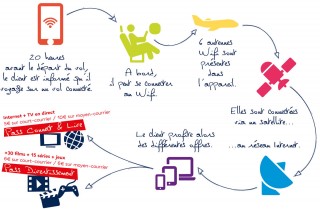 20 heures
avant le départ du vol,
le client est informé qu'il
voyage sur un vol connecté.
A bord,
il peut se connecter
au Wifi.
6 antennes
Wifi sont
présentes
dans
l'appareil.
Elles sont connectées
via un satellite...
...au réseau Internet.
Le client profite alors
des différentes offres.
Internet + TV en direct
5€ sur court-courrier / 10€ sur moyen-courrier
Pass Connect & Live
+30 films + 15 séries + jeux
sur court-courrier / 5€ sur moyen-courrier
Pass Divertissement